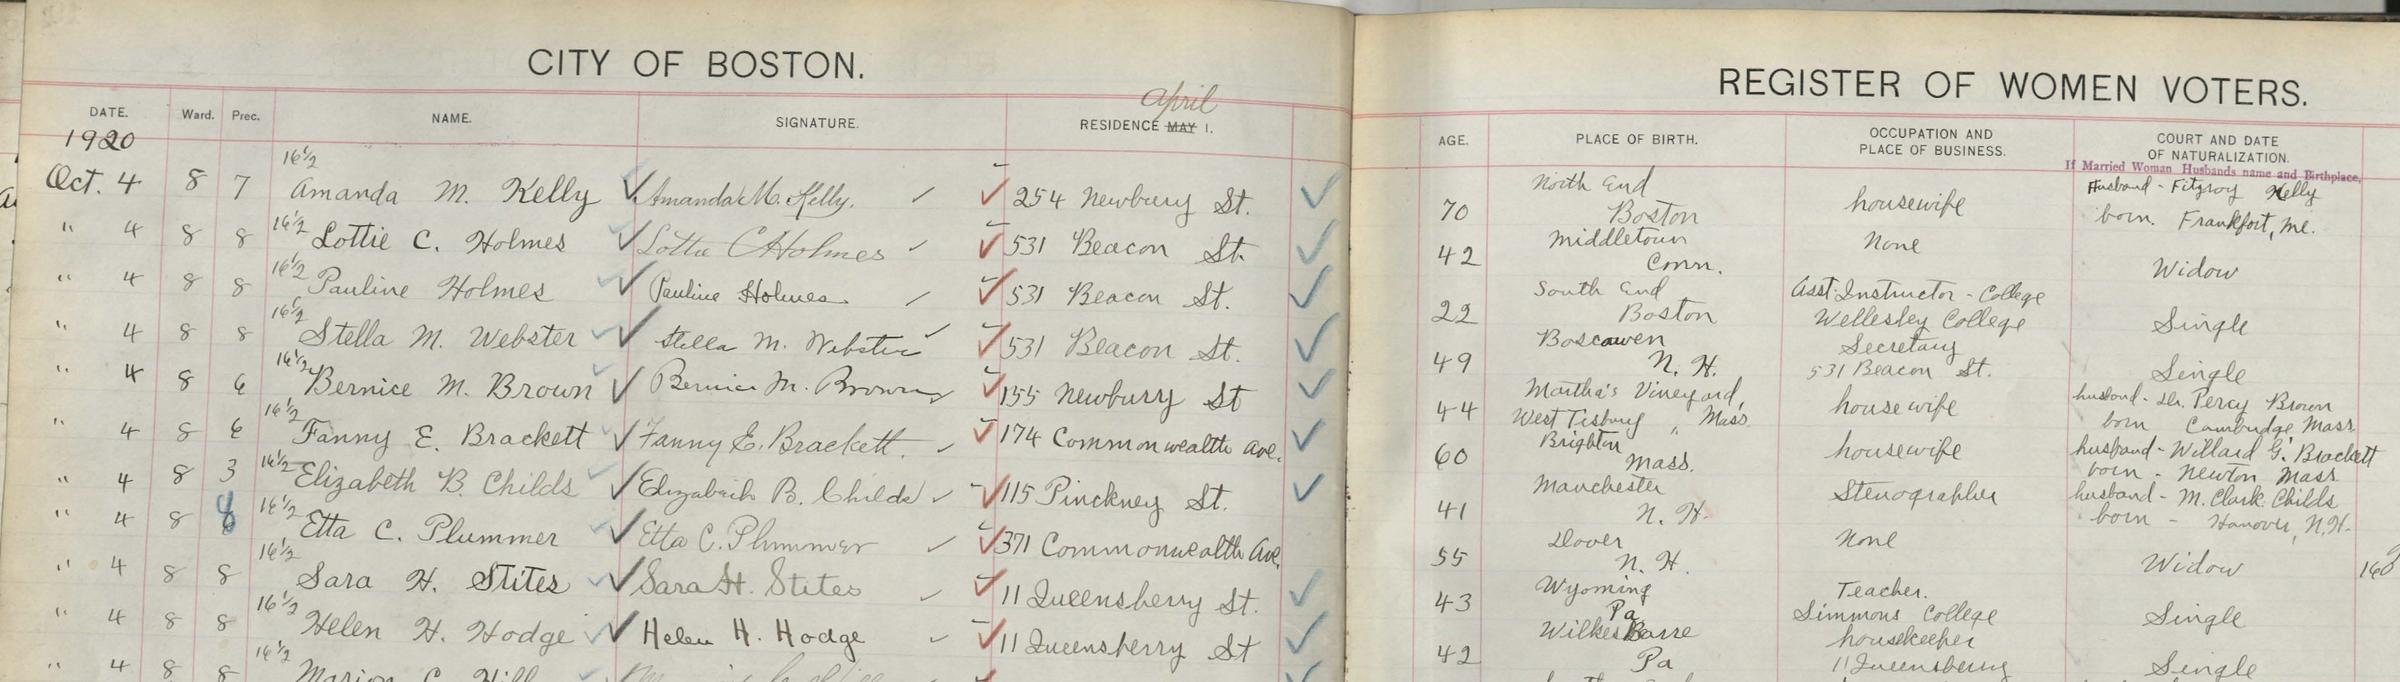 CITY OF BOSTON.
REGISTER OF WOMEN VOTERS.
DATE. Ward. Prec. NAME. SIGNATURE. RESIDENCE MAY 1. April
AGE. PLACE OF BIRTH. OCCUPATION AND PLACE OF BUSINESS. COURT AND DATE OF NATURALIZATION.
If Married Woman Husbands name and Birthplace,
1920
16½
Oct. 4 8 7 Amanda M. Kelly Amanda M. Kelly. 254 Newbury St. 70 North End Boston housewife Husband - Fitzroy Kelly born. Frankfort, Me.
" 4 8 8 16½ Lottie C. Holmes Lottie C Holmes 531 Beacon St. 42 Middletown Conn. None Widow
" 4 8 8 16½ Pauline Holmes Pauline Holmes 531 Beacon St. 22 South End Boston Asst. Instructor - College Wellesley College Single
" 4 8 8 16½ Stella M. Webster Stella M. Webster 531 Beacon St. 49 Boscawen N. H. Secretary 531 Beacon St. Single
" 4 8 6 16½ Bernice M. Brown Bernice M. Brown 155 Newbury St 44 Martha's Vineyard, West Tisbury, Mass. housewife husband - Dr. Percy Brown born Cambridge Mass.
" 4 8 6 16½ Fanny E. Brackett Fanny E. Brackett. 174 Commonwealth Ave. 60 Brighton Mass. housewife husband - Willard G. Brackett born - Newton Mass.
" 4 8 3 16½ Elizabeth B. Childs Elizabeth B. Childs 115 Pinckney St. 41 Manchester N. H. Stenographer husband - M. Clark Childs born - Hanover, N.H.
" 4 8 8 16½ Etta C. Plummer Etta C. Plummer 371 Commonwealth Ave. 55 Dover N. H. None Widow
" 4 8 8 16½ Sara H. Stites Sara H. Stites 11 Queensberry St. 43 Wyoming Pa Teacher. Simmons College Single
" 4 8 8 16½ Helen H. Hodge Helen H. Hodge 11 Queensberry St 42 Wilkes Barre Pa housekeeper 11 Queensberry Single
" 4 8 8 16½ Marion C. Hill